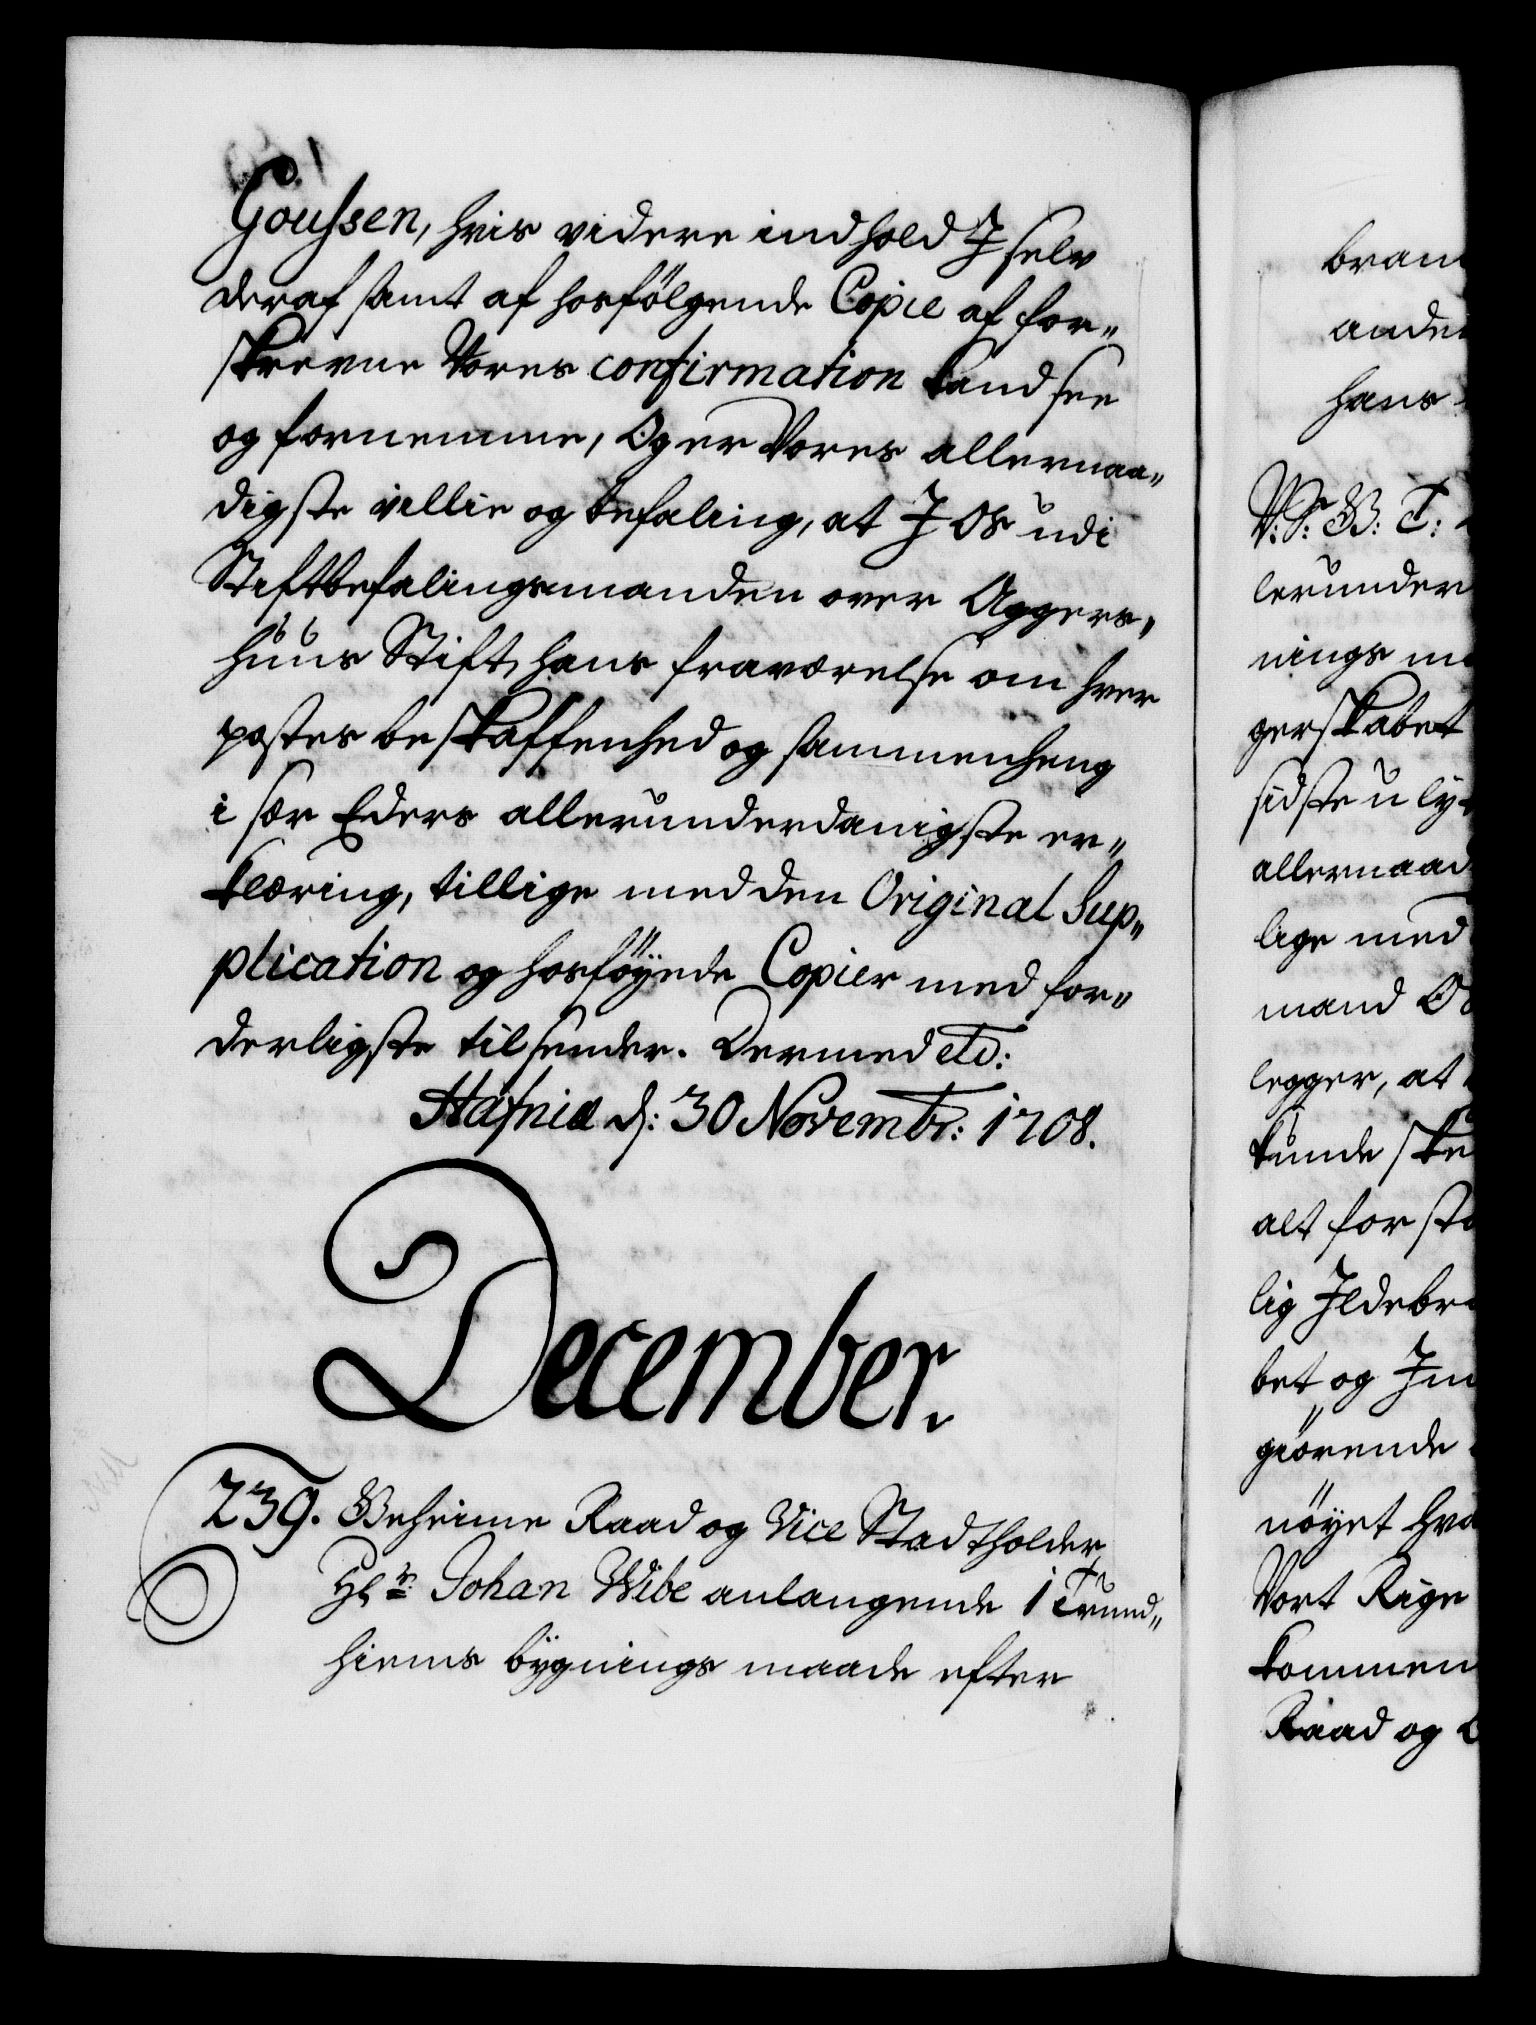 Goussen, hvis videre indhold I selv
deraf samt af hosfölgende Copie af for„
skrevne Vores confirmation kand see
og fornemme, Og er Vores allernaa„
digste villie og befaling, at I Os udi
Stiftbefalingsmanden over Aggers„
huus Stift, hans fraværelse om hver
postes beskaffenhed og sammenheng
i sær Eders allerunderdanigste er„
klæring, tillige med den Original Sup„
plication og hosföyede Copier med for„
derligste tilsender. Dermed etc:
Hafniæ d: 30 Novembr: 1708.
December.
239. Geheime Raad og Vice Stadtholder,
Hr: Johan Wibe anlangende i Trund„
hiems bygnings maade efter
bran
ande
hans
V. S. G: T:
lerunder
nings m
gerskabet
sidste u ly
allernaad
lige med
mand O
legger, at
kunde ske
alt for st
lig Ildebr
bet og In
giörende
nöyet hva
Vort Rige
kommen
Raad og